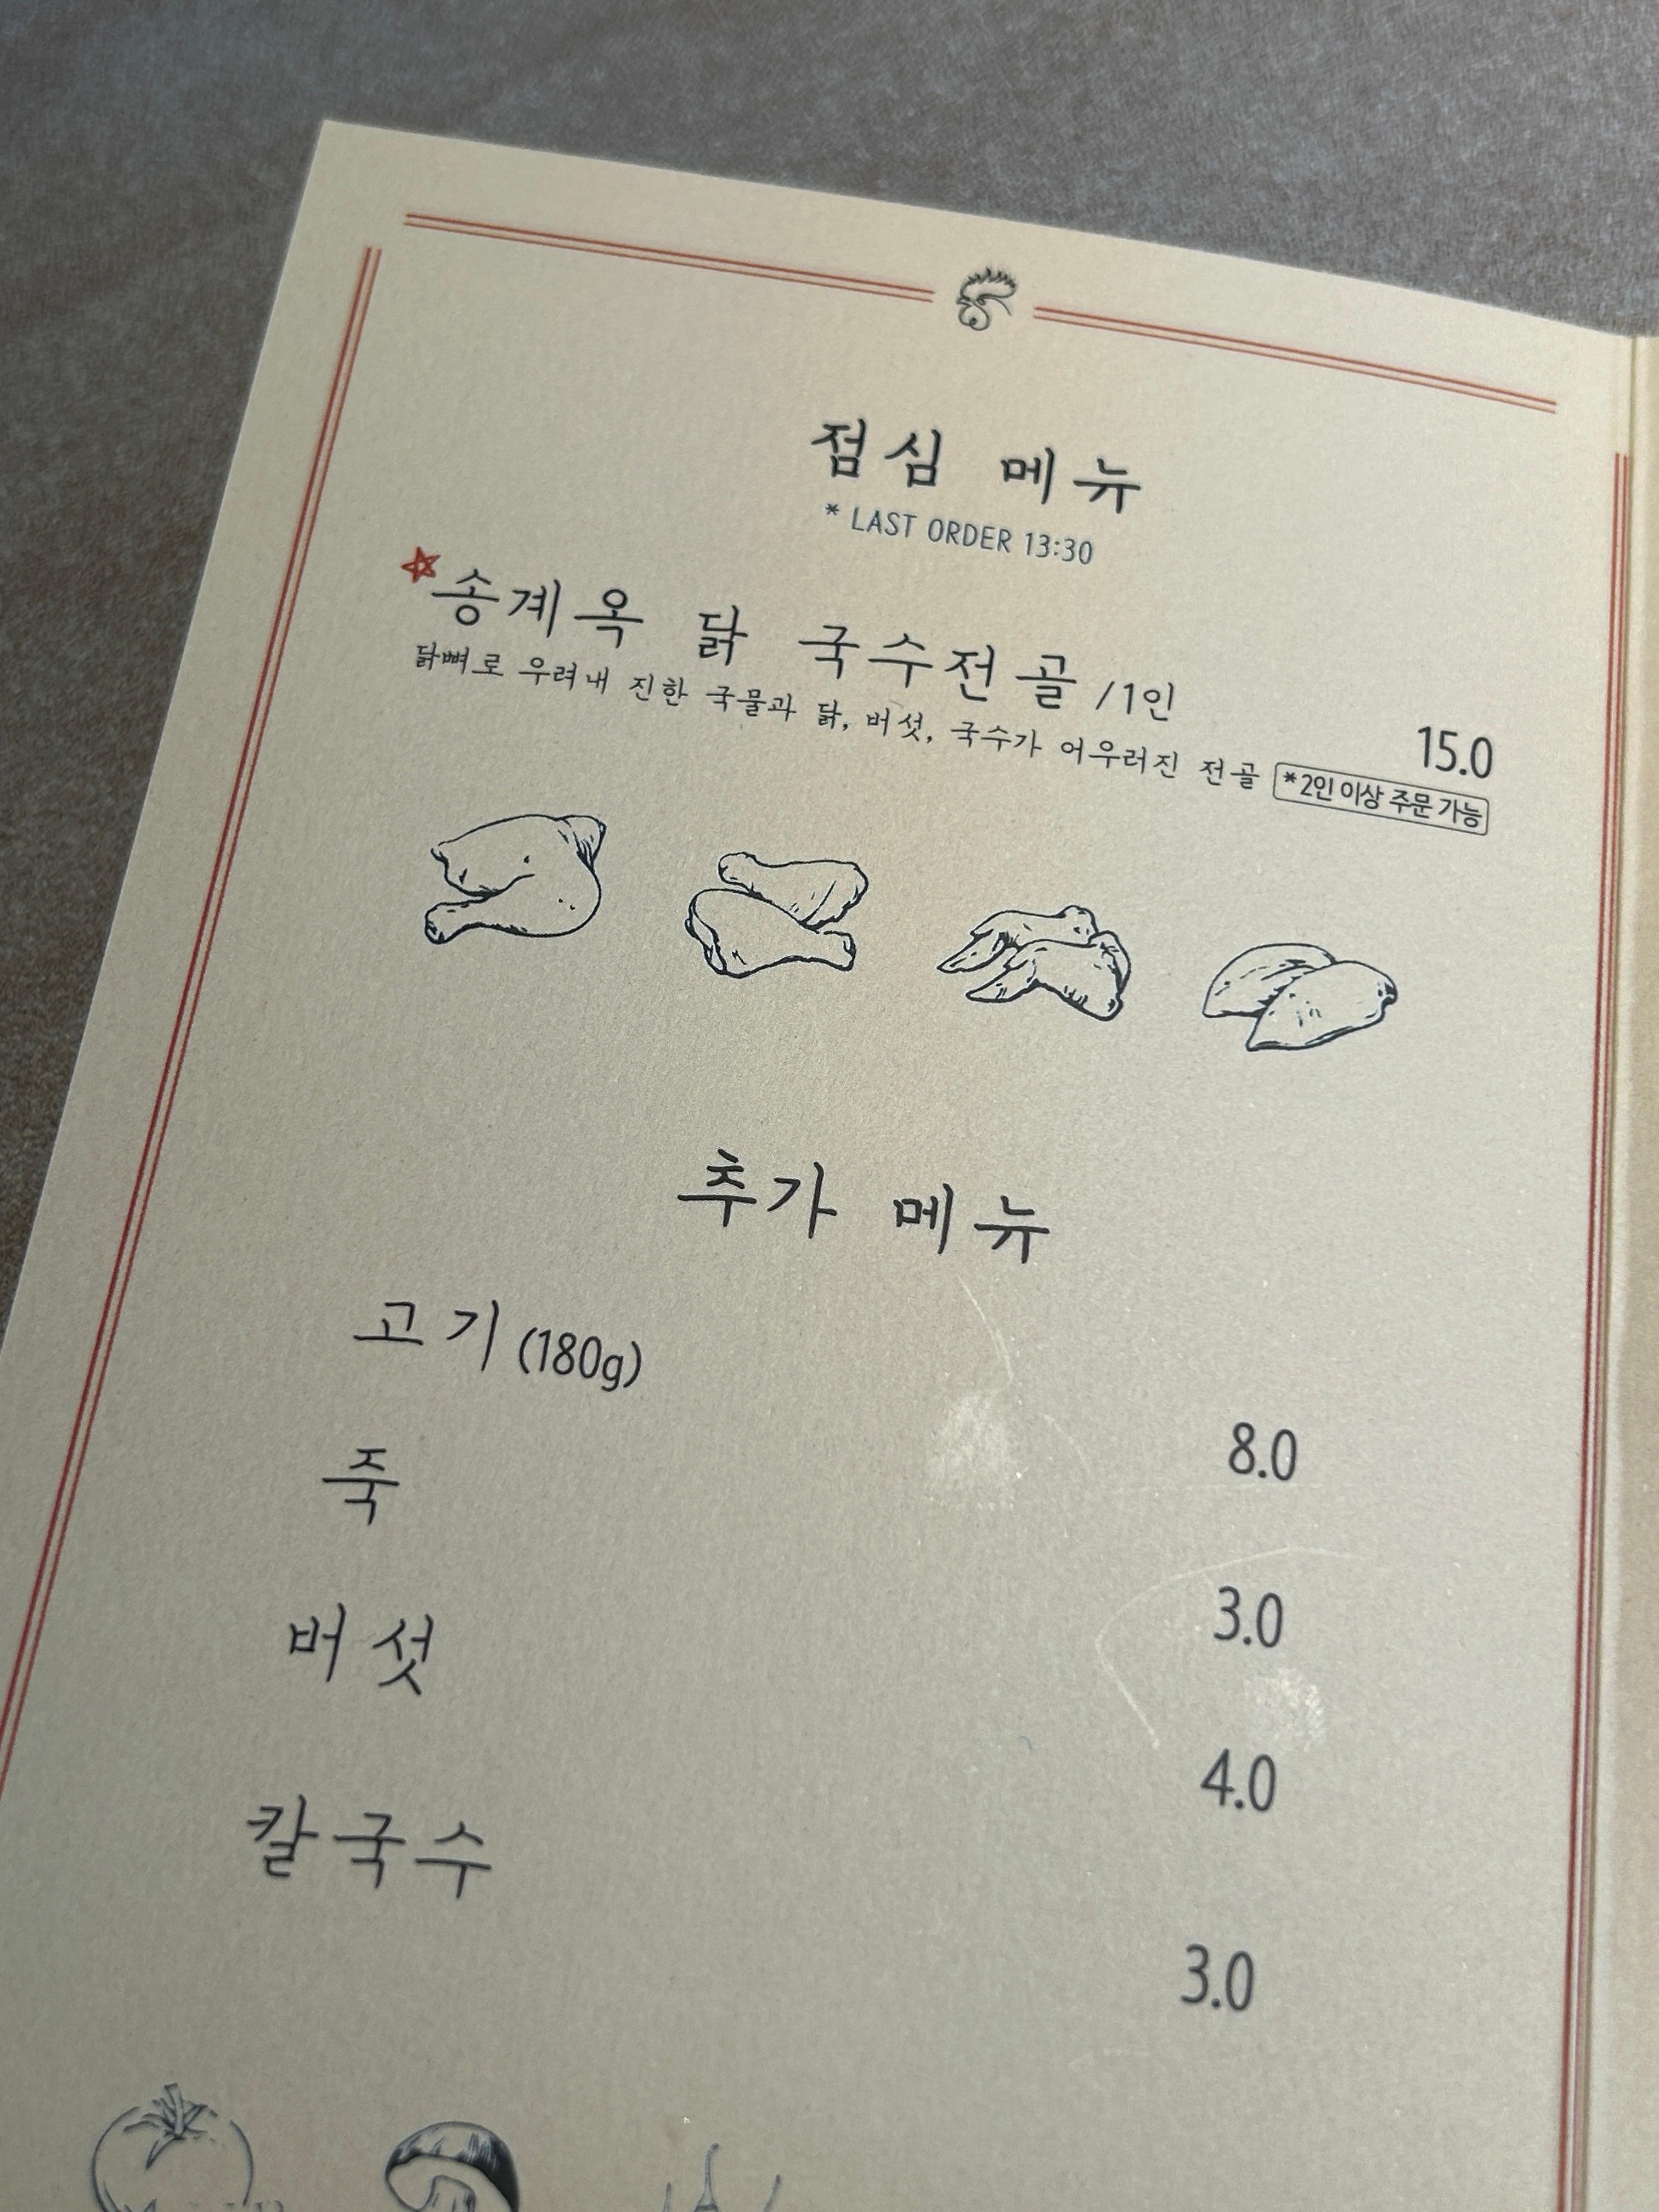 점심 메뉴
* LAST ORDER 13:30
송계옥 닭 국수전골 /1인 15.0
닭뼈로 우려내 진한 국물과 닭, 버섯, 국수가 어우러진 전골 *2인 이상 주문 가능
추가 메뉴
고기 (180g) 8.0
죽 3.0
버섯 4.0
칼국수 3.0